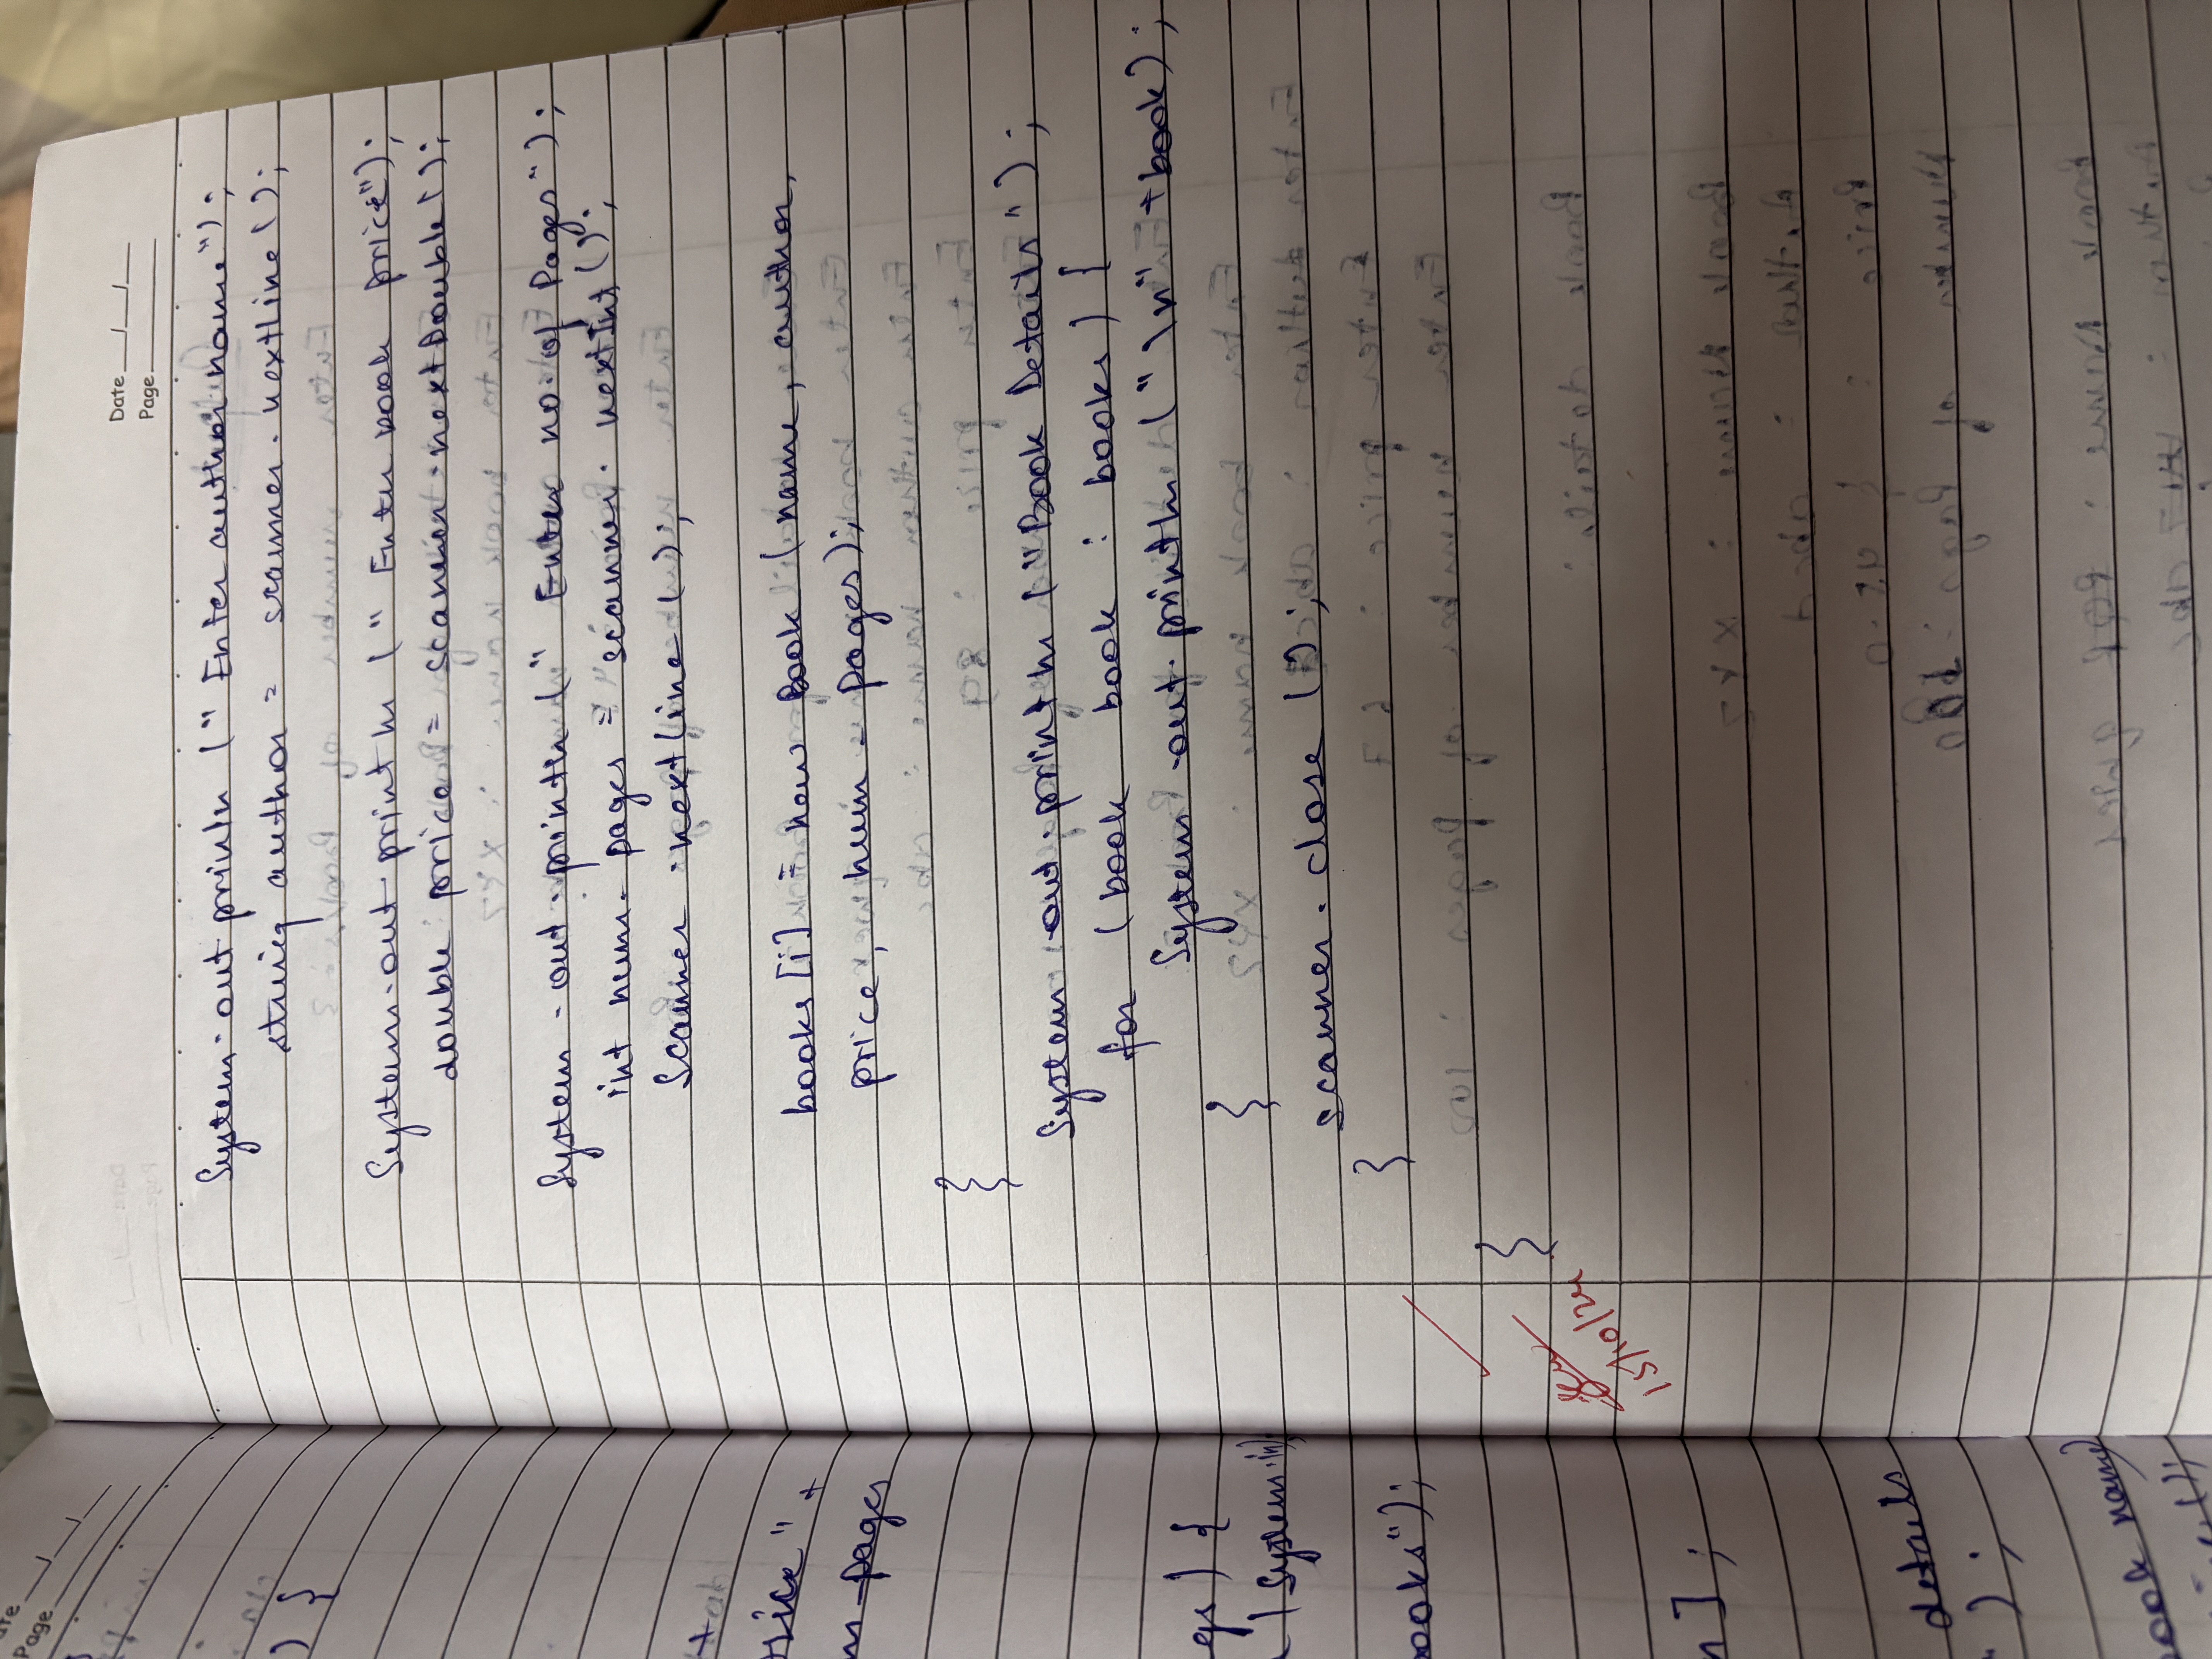 Date __/__/__
Page
System.out println (" Enter author name");
string author = scanner.nextline();
System.out.println (" Enter book price");
double price = scanner.nextDouble();
System.out.println (" Enter no. of Pages");
int num_pages = scanner.nextInt();
Scanner.nextline();
books[i] = new Book (name, author,
price, num_pages);
}
System.out.println ("Book Details");
for (book book : books) {
System.out.println ("\n" +book);
}
scanner.close();
}
}
15/10/24
ate
Page
) {
rice" +
m_pages
gs) {
(System.in)
books");
n];
details
");
book name